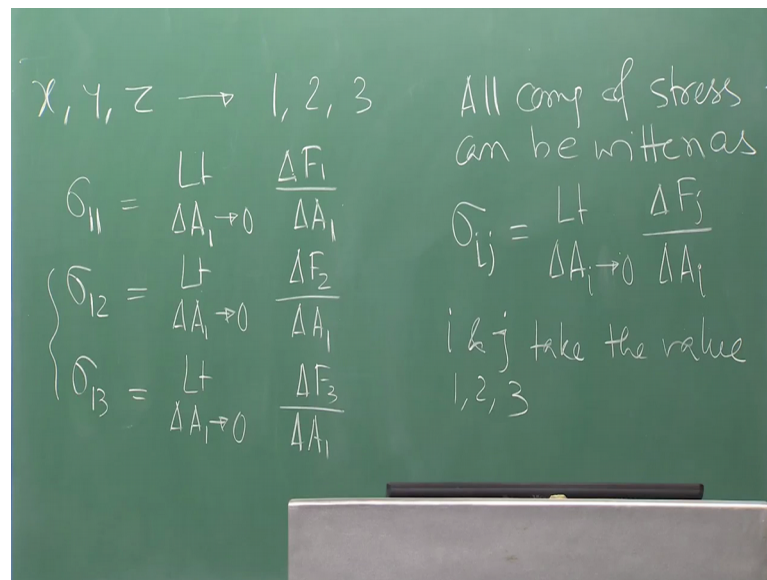 x, y, z → 1, 2, 3
σ11 = Lt ΔA1→0 ΔF1/ΔA1
σ12 = Lt ΔA1→0 ΔF2/ΔA1
σ13 = Lt ΔA1→0 ΔF3/ΔA1
All comp of stress
can be written as
σij = Lt ΔAi→0 ΔFj/ΔAi
i & j take the value
1, 2, 3